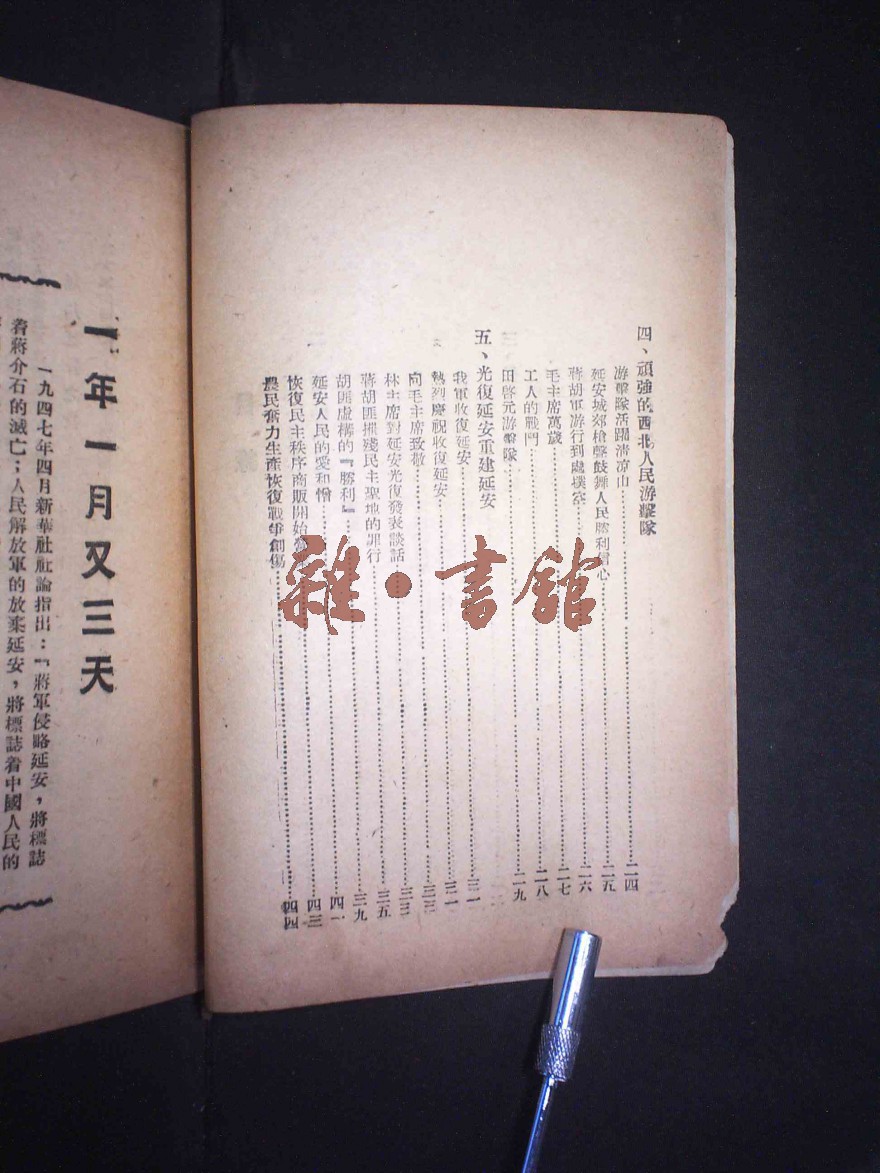 四、頑強的西北人民游擊隊
游擊隊活躍清凉山……二四
延安城郊槍聲鼓舞人民勝利信心……二五
蔣胡軍游行到處撲空……二六
毛主席萬歲……二七
工人的戰鬥……二八
田啓元游擊隊……二九
五、光復延安重建延安
我軍收復延安……三一
熱烈慶祝收復延安……三一
向毛主席致敬……三三
林主席對延安光復發表談話……三三
蔣胡匪摧殘民主聖地的罪行……三五
胡匪虛構的『勝利』……三九
延安人民的愛和憎……四一
恢復民主秩序商販開始……四三
農民奮力生產恢復戰爭創傷……四四
雜·書館
一年一月又三天
一九四七年四月新華社社論指出：『蔣軍侵略延安，將標誌
着蔣介石的滅亡；人民解放軍的放棄延安，將標誌着中國人民的